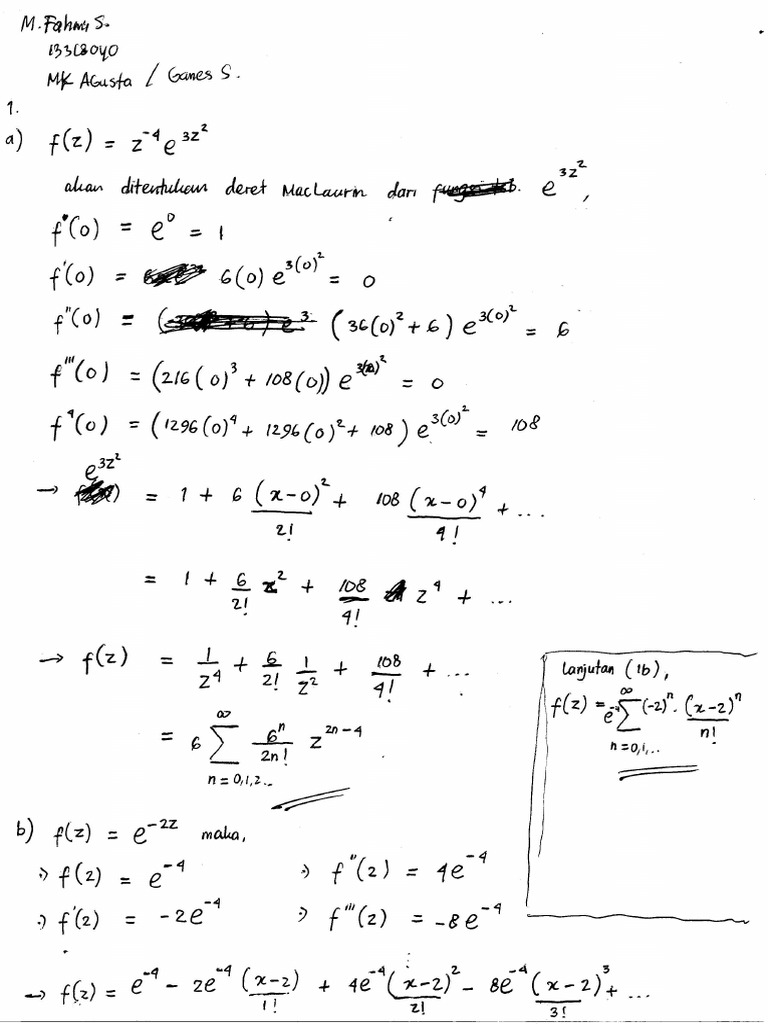 M. Fahmi S.
13318040
MK Agusta / Ganes S.
1.
a) f(z) = z^-4 e^3z^2
akan ditentukan deret MacLaurin dari e^3z^2,
f(0) = e^0 = 1
f'(0) = 6(0) e^3(0)^2 = 0
f''(0) = (36(0)^2 + 6) e^3(0)^2 = 6
f'''(0) = (216(0)^3 + 108(0)) e^3(0)^2 = 0
f^4(0) = (1296(0)^4 + 1296(0)^2 + 108) e^3(0)^2 = 108
→ e^3z^2 = 1 + 6 (x-0)^2/2! + 108 (x-0)^4/4! + ...
= 1 + 6/2! z^2 + 108/4! z^4 + ...
→ f(z) = 1/z^4 + 6/2! 1/z^2 + 108/4! + ...
= 6 ∞∑n=0,1,2.. 6^n/2n! z^2n-4
Lanjutan (1b),
f(z) = e^-4 ∞∑n=0,1,.. (-2)^n . (x-2)^n/n!
b) f(z) = e^-2z maka,
∴) f(2) = e^-4 ∴) f''(2) = 4e^-4
∴) f'(2) = -2e^-4 ∴) f'''(2) = -8e^-4
→ f(z) = e^-4 - 2e^-4 (x-2)/1! + 4e^-4 (x-2)^2/2! - 8e^-4 (x-2)^3/3! + ...